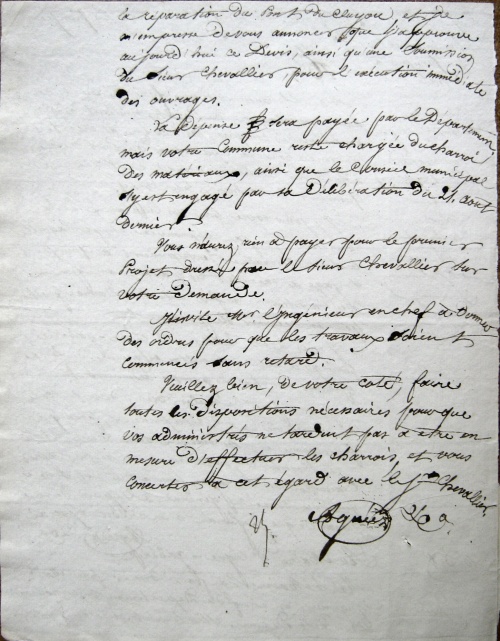 la réparation du Pont du Cluzou, et je
m'empresse de vous annoncer que j'approuve
aujourd'hui ce Devis, ainsi qu'une Soumission
du Sieur Chevallier, pour l'exécution immédiate
des ouvrages.
La Dépense sera payée par le Département,
mais votre Commune reste chargée du charroi
des matériaux, ainsi que le Conseil municipal
s'y est engagé par sa Délibération du 21 aout
dernier.
Vous n'aurez rien à payer pour le premier
Projet dressé par le Sieur Chevallier sur
votre Demande.
J'invite Mr l'Ingénieur en chef à Donner
des ordres pour que les travaux soient
commencés sans retard.
Veuillez bien, de votre coté, faire
toutes les Dispositions nécessaires pour que
vos administrés ne tardent pas à être en
mesure d'effectuer les charrois, et vous
concerter à cet égard avec le Sr Chevallier.